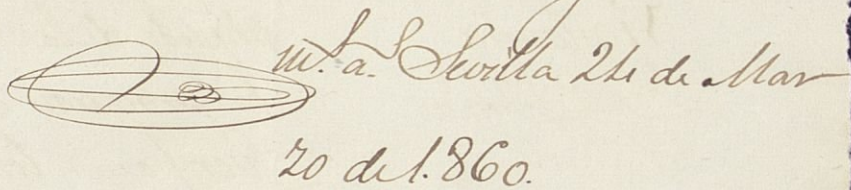 m.ˢ a.ˢ Sevilla 24 de Mar
zo de 1.860.